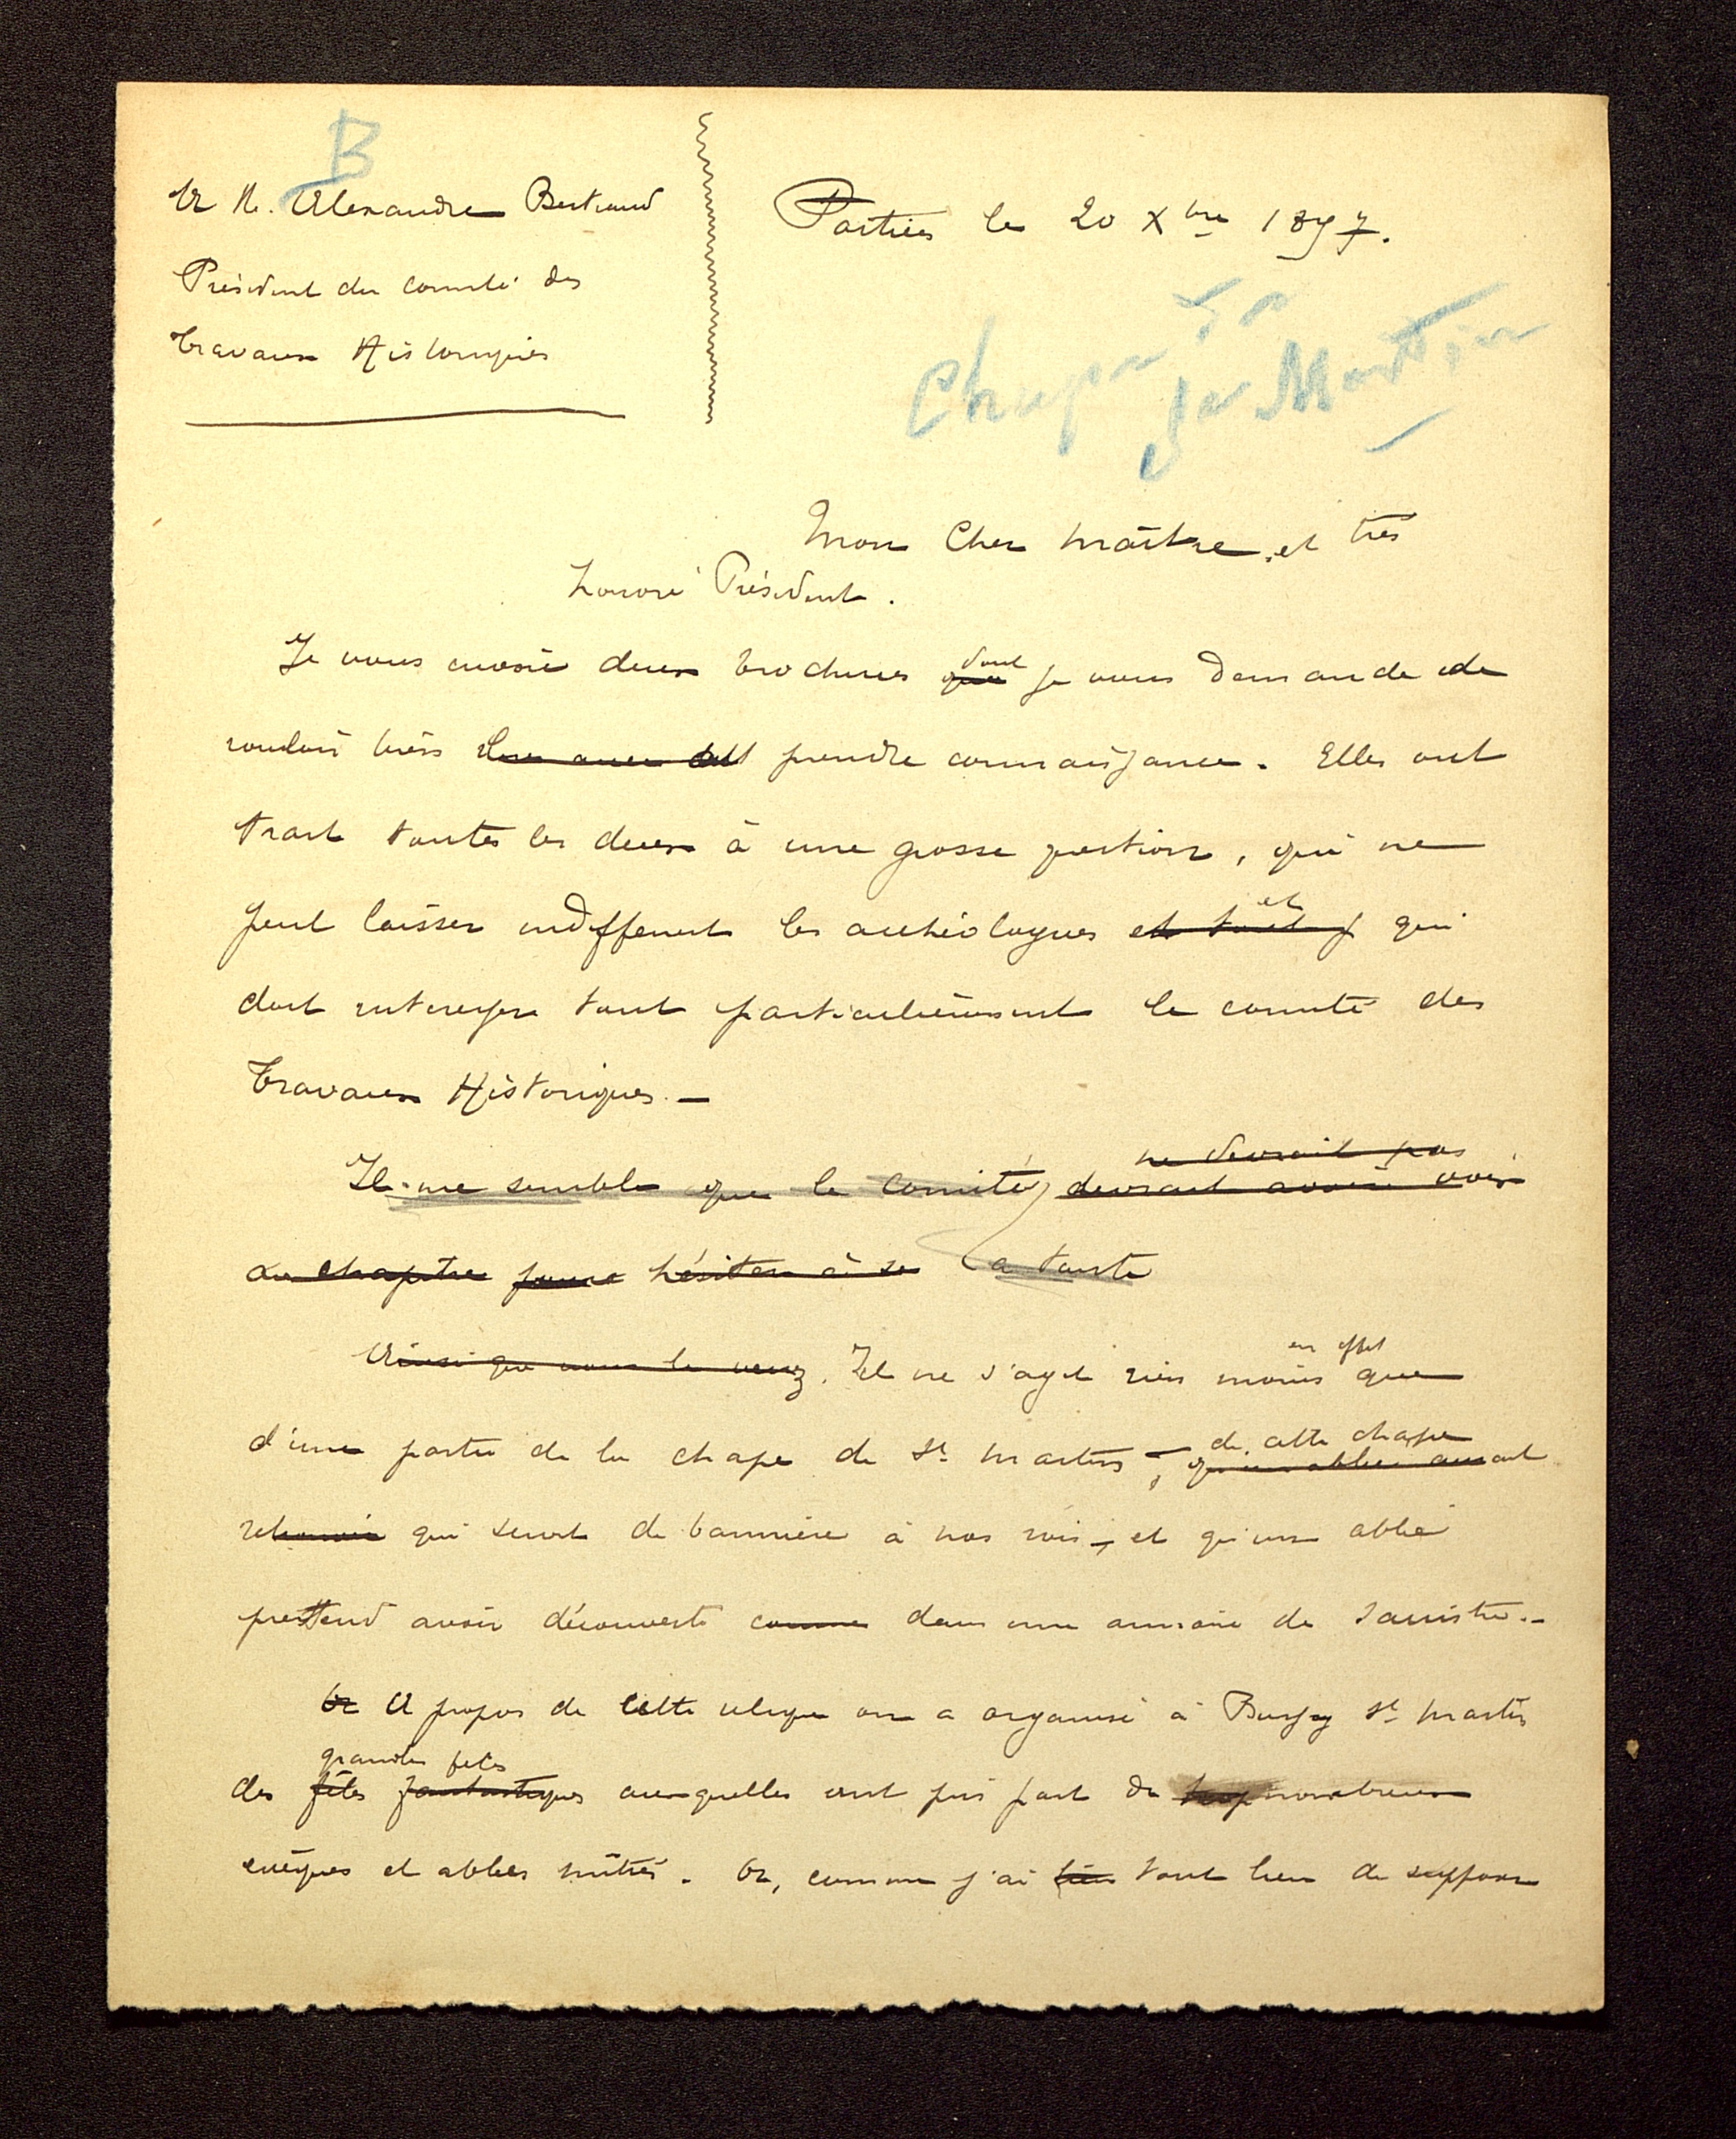 B
A M. Alexandre Bertrand
Président du comité des
Travaux Historiques
Poitiers le 20 Xbre 1897.
Chape
de
St Martin
Mon Cher Maître et très
honoré Président.
Je vous envoie deux brochures que dont je vous demande de
vouloir bien prendre connaissance. Elles ont
trait toutes les deux à une grosse question, qui ne
peut laisser indifferent les archéologues et tout et qui
doit interesser tout particulièrement le comité des
Travaux Historiques. —
ne devrait pas
Il me semble que le Comité, devrait avoir voix
au chapitre hésiter à se
Ainsi que vous le verrez. Il ne s'agit rien moins en effet que
d'une partie de la chape de St Martin — de cette chape qu'un abbé aurait
qui servit de bannière à nos rois, et qu'un abbé
prettend avoir découverte comme dans une armoire de sacristie. —
Or A propos de cette relique on a organisé à Bussy St Martin
des fêtes fantastiques grandes fetes auxquelles ont pris part de trop nombreux
evêques et abbés mitrés. Or, comme j'ai bien tout lieu de supposer